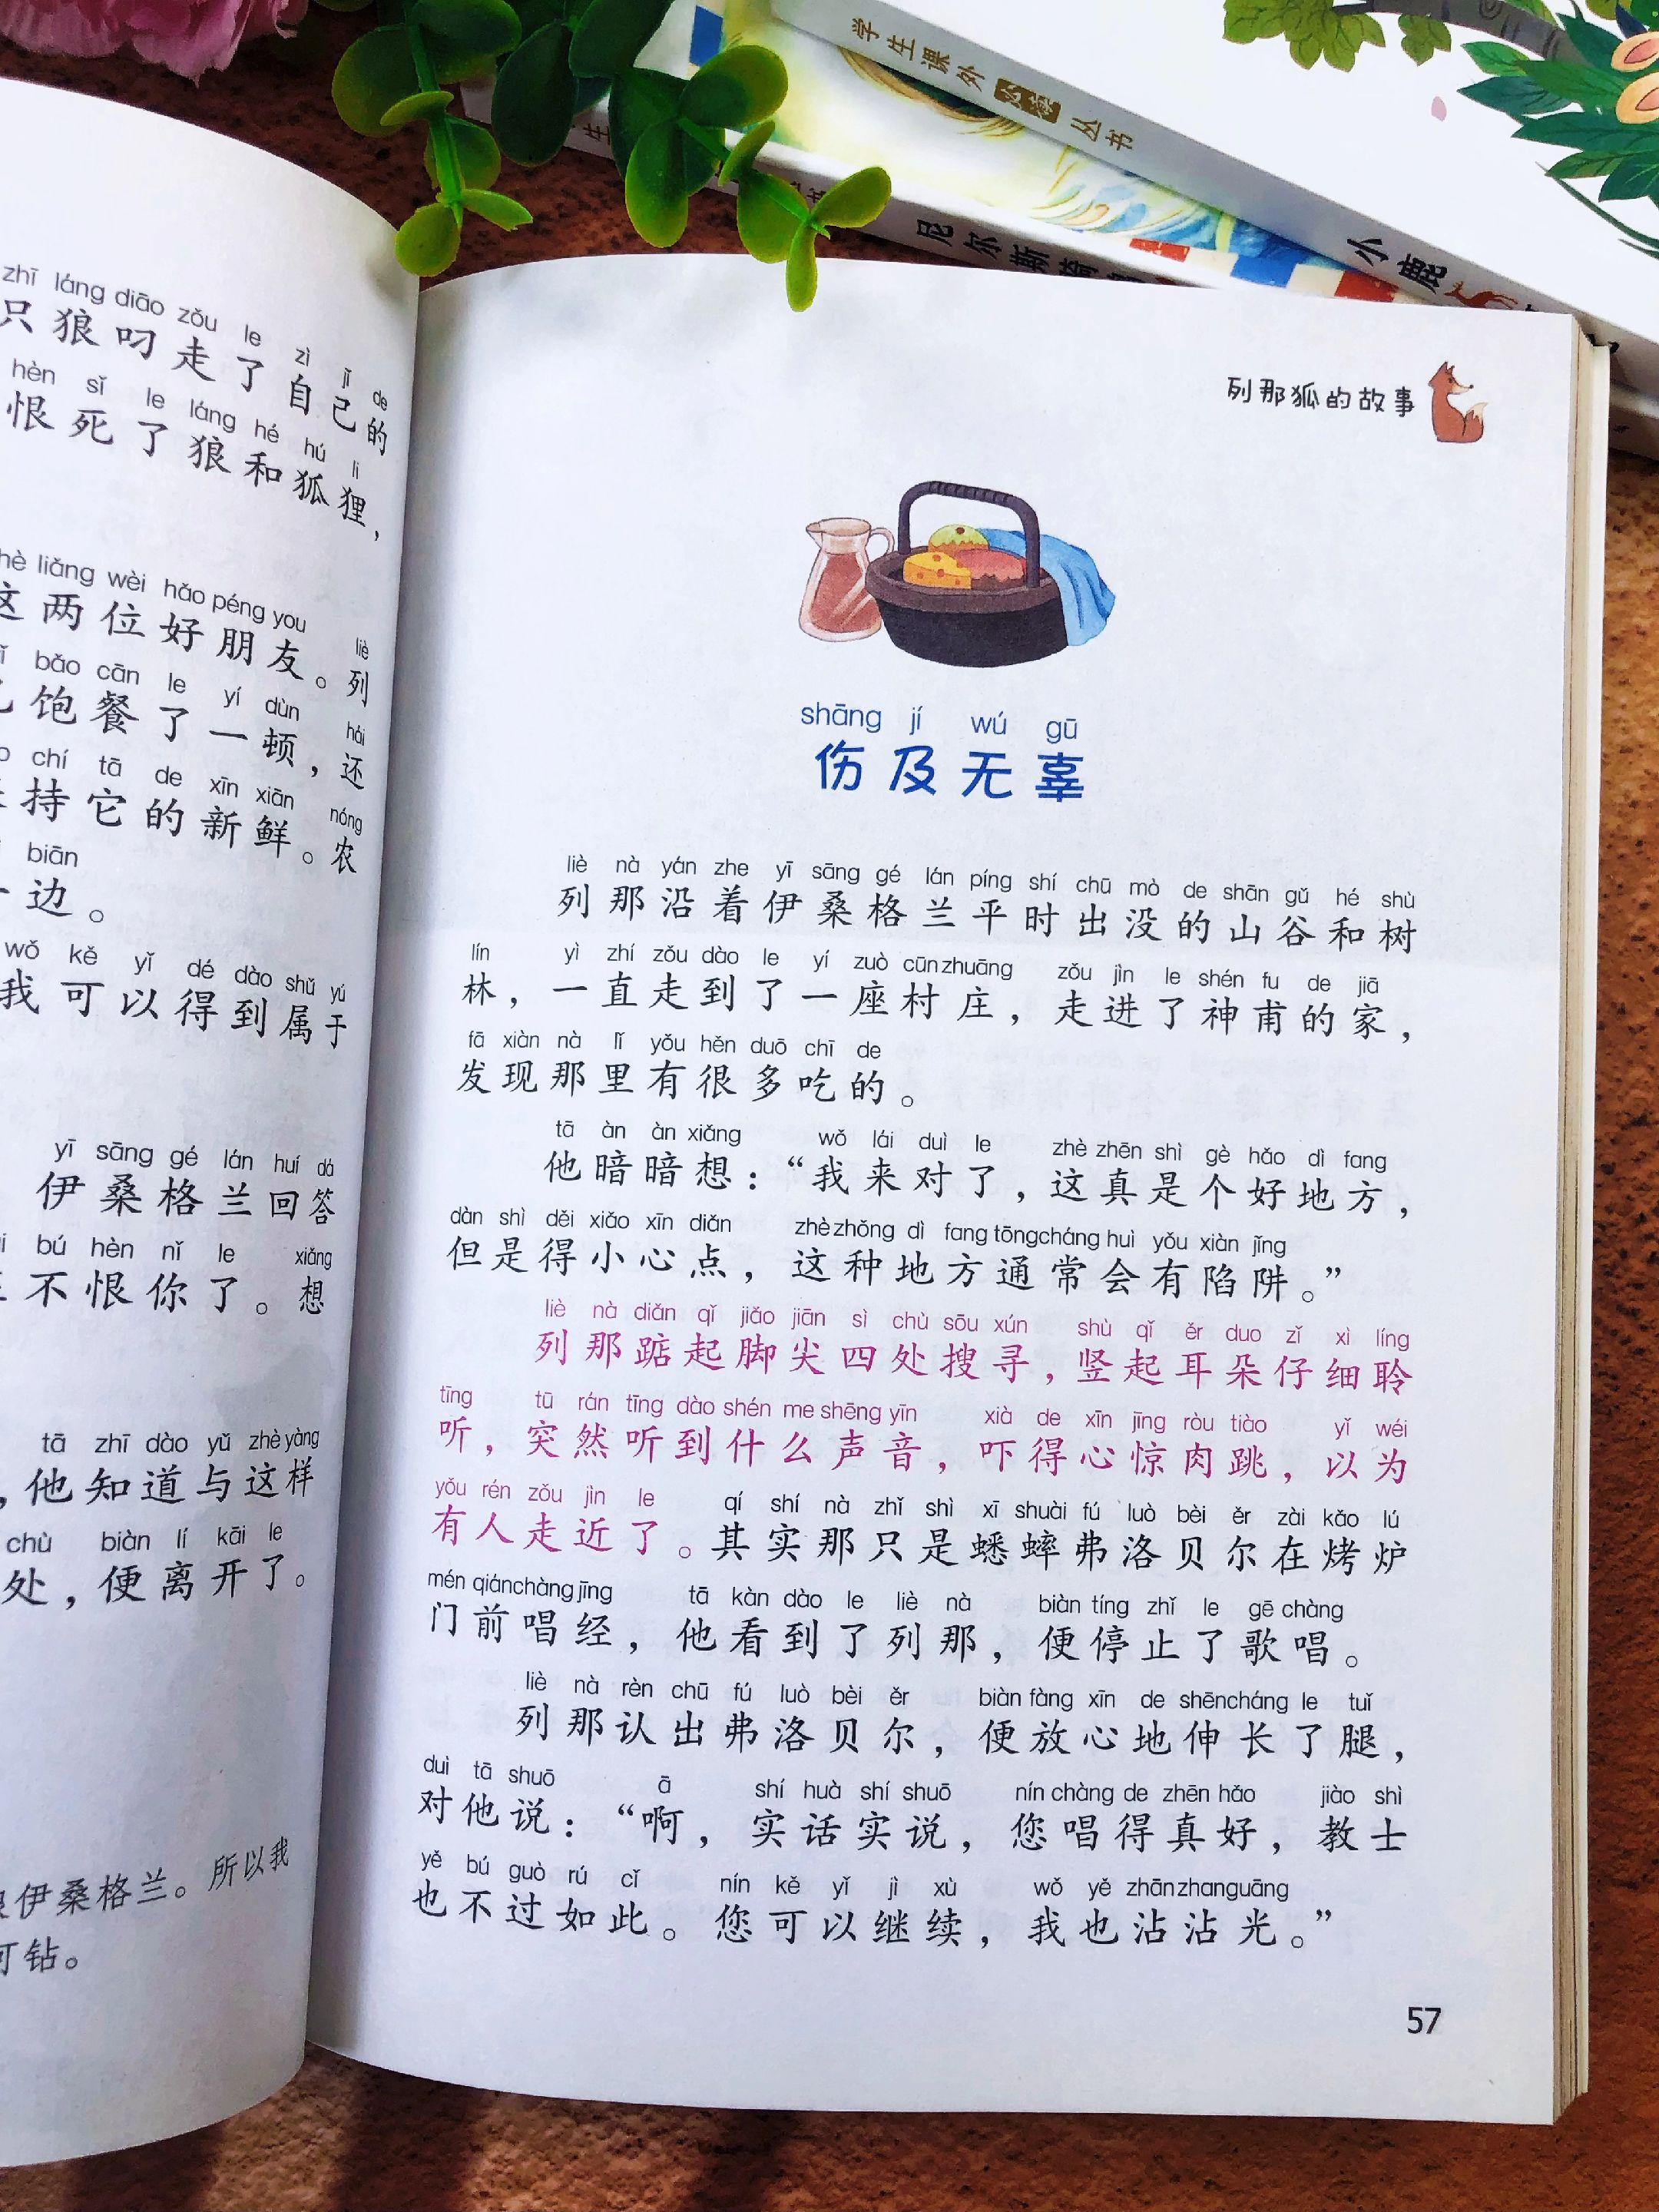 学生课外必读丛书
尼尔斯骑
小鹿
zhī láng diāo zǒu le zì jǐ de
只狼叼走了自己的
hèn sǐ le láng hé hú li
恨死了狼和狐狸，
liǎng wèi hǎo péng you liè
这两位好朋友。列
bǎo cān le yí dùn hái
饱餐了一顿，还
chí tā de xīn xiān nóng
持它的新鲜。农
biān
一边。
wǒ kě yǐ dé dào shǔ yú
我可以得到属于
yī sāng gé lán huí dá
伊桑格兰回答
bú hèn nǐ le xiǎng
不恨你了。想
tā zhī dào yǔ zhè yàng
，他知道与这样
chù biàn lí kāi le
处，便离开了。
伊桑格兰。所以我
可钻。
列那狐的故事
shāng jí wú gū
伤及无辜
liè nà yán zhe yī sāng gé lán píng shí chū mò de shān gǔ hé shù
列那沿着伊桑格兰平时出没的山谷和树
lín yì zhí zǒu dào le yí zuò cūn zhuāng zǒu jìn le shén fu de jiā
林，一直走到了一座村庄，走进了神甫的家，
fā xiàn nà lǐ yǒu hěn duō chī de
发现那里有很多吃的。
tā àn àn xiǎng wǒ lái duì le zhè zhēn shì gè hǎo dì fang
他暗暗想：“我来对了，这真是个好地方，
dàn shì děi xiǎo xīn diǎn zhè zhǒng dì fang tōng cháng huì yǒu xiàn jǐng
但是得小心点，这种地方通常会有陷阱。”
liè nà diǎn qǐ jiǎo jiān sì chù sōu xún shù qǐ ěr duo zǐ xì líng
列那踮起脚尖四处搜寻，竖起耳朵仔细聆
tīng tū rán tīng dào shén me shēng yīn xià de xīn jīng ròu tiào yǐ wéi
听，突然听到什么声音，吓得心惊肉跳，以为
yǒu rén zǒu jìn le qí shí nà zhǐ shì xī shuài fú luò bèi ěr zài kǎo lú
有人走近了。其实那只是蟋蟀弗洛贝尔在烤炉
mén qián chàng jīng tā kàn dào le liè nà biàn tíng zhǐ le gē chàng
门前唱经，他看到了列那，便停止了歌唱。
liè nà rèn chū fú luò bèi ěr biàn fàng xīn de shēn cháng le tuǐ
列那认出弗洛贝尔，便放心地伸长了腿，
duì tā shuō ā shí huà shí shuō nín chàng de zhēn hǎo jiào shì
对他说：“啊，实话实说，您唱得真好，教士
yě bú guò rú cǐ nín kě yǐ jì xù wǒ yě zhān zhan guāng
也不过如此。您可以继续，我也沾沾光。”
57